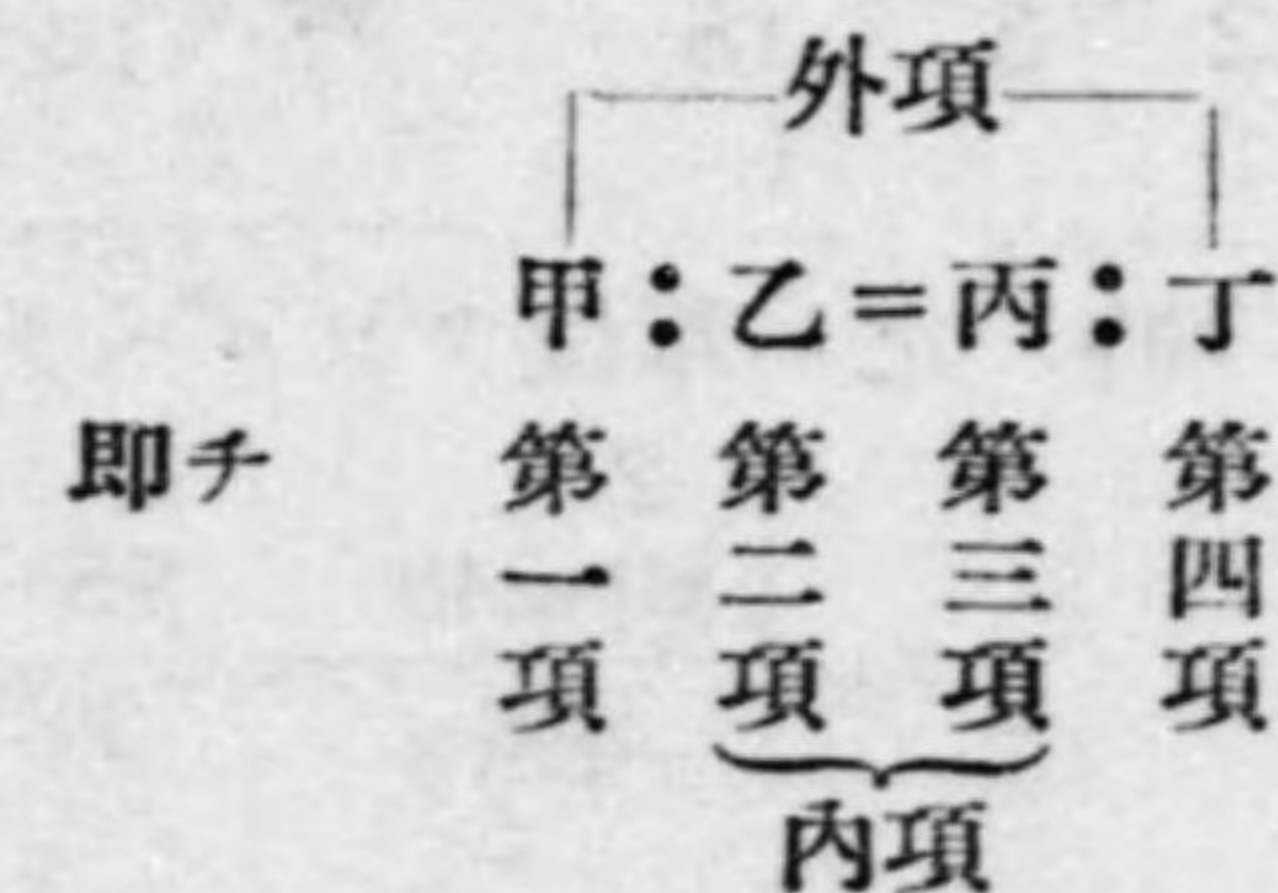 外項
甲：乙＝丙：丁
即チ
第一項
第二項
第三項
第四項
內項